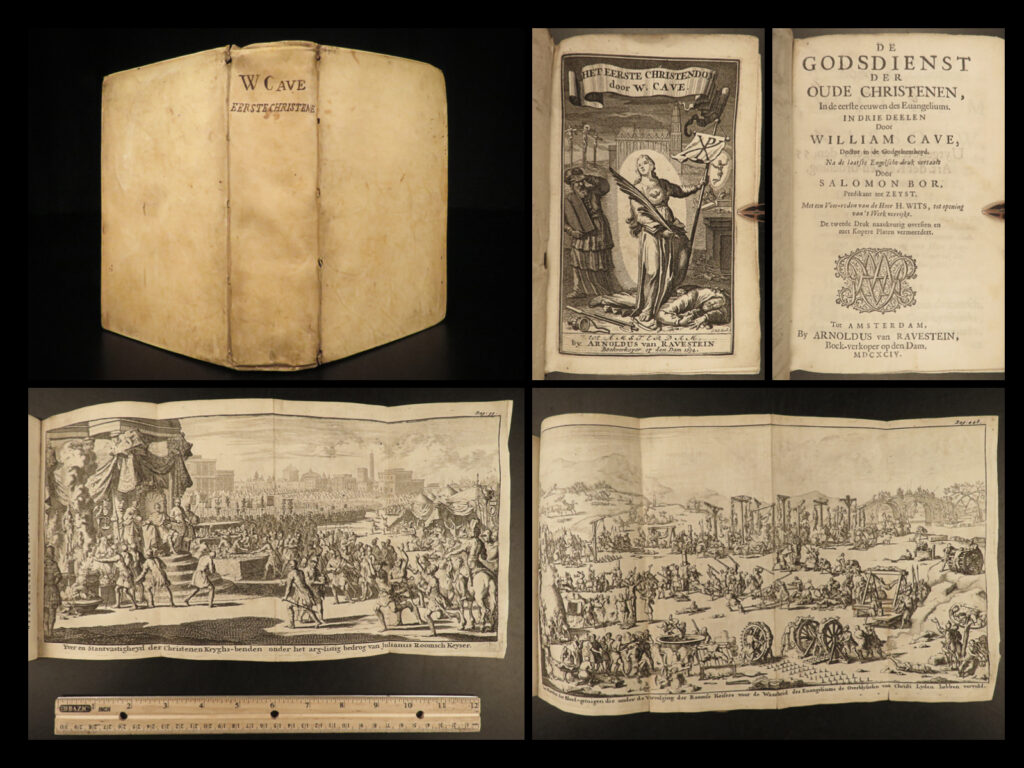 W CAVE
EERSTE CHRISTENE
HET EERSTE CHRISTENDOM
door W. CAVE.
tot AMSTERDAM
by ARNOLDUS van RAVESTEIN
Boekverkoper op den Dam 1694.
DE
GODSDIENST
DER
OUDE CHRISTENEN,
In de eerste eeuwen des Euangeliums.
IN DRIE DEELEN
Door
WILLIAM CAVE,
Doctor in de Godgeleertheyd.
Na de laatste Engelsche druk vertaalt
Door
SALOMON BOR,
Predikant tot ZEYST.
Met een Voor-reden van de Heer H. WITS, tot opening
van 't Werk verrijkt.
De tweede Druk naaukeurig oversien en
met Kopere Platen vermeerdert.
Tot AMSTERDAM,
By ARNOLDUS van RAVESTEIN,
Boek-verkoper op den Dam.
MDCXCIV.
Yver en Stantvastigheyd der Christenen Kryghs-benden onder het arg-listig bedrog van Julianus Roomsch Keyser.
der onder de Vervolging der Roomse Keisers voor de Waarheid des Euangeliums de Overblyfselen van Christi Lyden hebben vervuld.
INCH
1 2 3 4 5 6 7 8 9 10 11 12